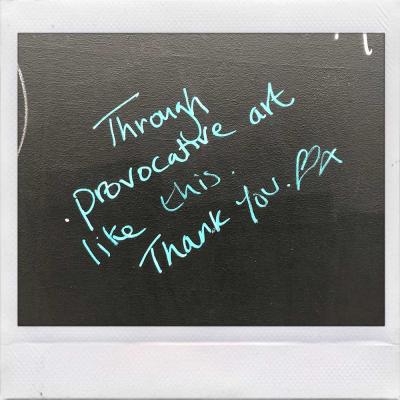 Through
provocative art
like this.
Thank You. ♡x